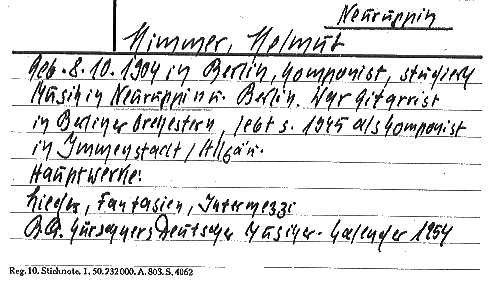 Neuruppin
Himmer, Helmut
geb. 8.10.1904 in Berlin, Komponist, studierte
Musik in Neuruppin u. Berlin. War Gitarrist
in Berliner Orchestern, lebt s. 1945 als Komponist
in Immenstadt/Allgäu.
Hauptwerke:
Lieder, Fantasien, Intermezzi
Kürschners Deutscher Musiker-Kalender 1954
Reg. 10. Stichnote. 1. 50. 732000. A. 803. S. 4062